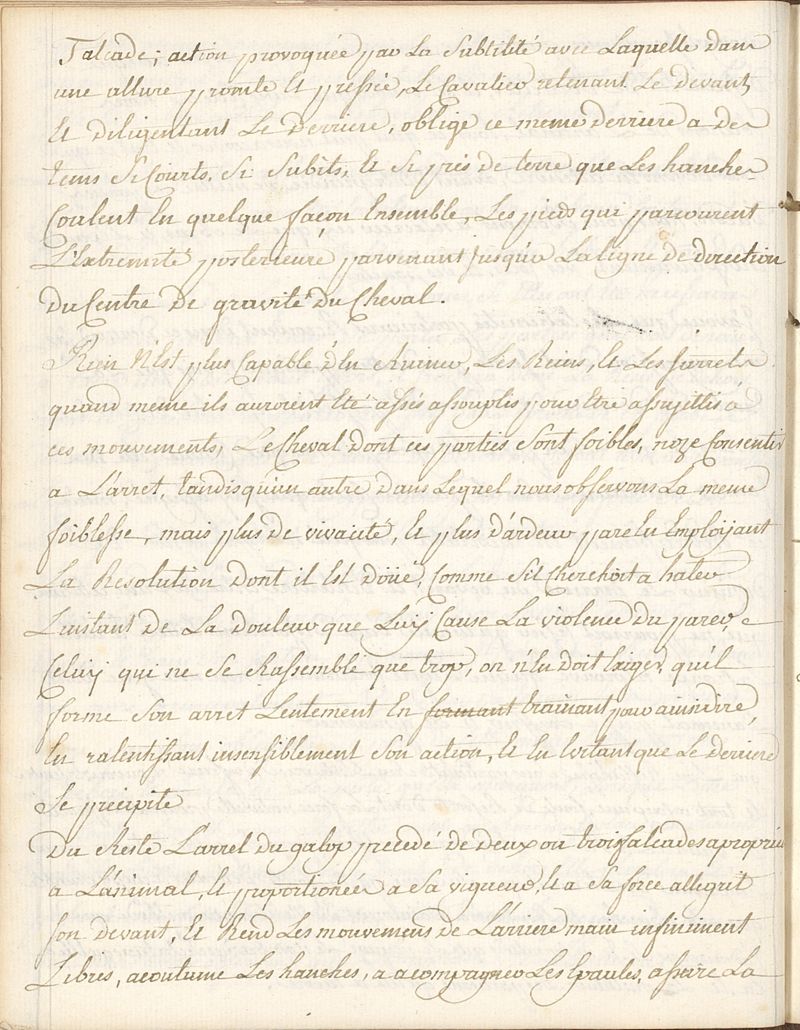 falcade; action provoquée par La Subtilité avec Laquelle dans
une allure promte Et pressée, Le Cavalier retenant Le devant,
Et diligentant Le Derriere, oblige ce meme derriere a des
tems Si Courts, Si Subits, Et Si prés de terre que Les hanches
Coulent En quelque façon Ensemble, Les pieds qui parcourent
L'Extremité posterieure parvenant jusqu'a La Ligne de direction
Du Centre De gravité Du Cheval.
Rien N'Est plus Capable d'En Ruiner, Les Reins, Et Les jarrets
quand meme ils auroient Eté assés assouplis pour Etre assujettis á
ces mouvements, Le Cheval dont ces parties Sont foibles, n'oze Consentir
a L'arret, tandis qu'un autre dans Lequel nous observons La meme
foiblesse, mais plus de vivacité, Et plus d'ardeur pare En Employant
La Resolution dont il Est döüé, Comme S'il Cherchoit a hater
L'instant de La Douleur que Luÿ Cause La violence du parer,
Celuÿ qui ne Se Rassemble que trop, on n'En doit Exiger, qu'il
forme Son arret Lentement En formant trainant pour ainsi dire,
En ralentissant insensiblement Son action, Et En Evitant que Le derriere
Se précipite
Du Reste L'arret du galop precedé de deux ou trois falcades aproprié
a L'animal, Et proportionées a Sa vigueur, Et a Sa force allegrit
Son devant, Et Rend Les mouvemens de L'arriere main infiniment
Libres, acoutume Les hanches, a acompagner Les Epaules, assure La